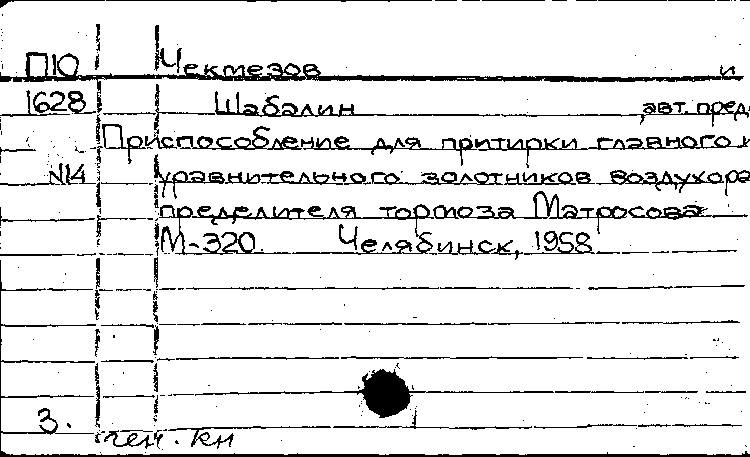 П10 Чектезов и
1628 Шабалин авт. пред.
Приспособление для притирки главного и
N14 уравнительного золотников воздухора
пределителя тормоза Матросова
М-320. Челябинск, 1958
3.
ген. кн